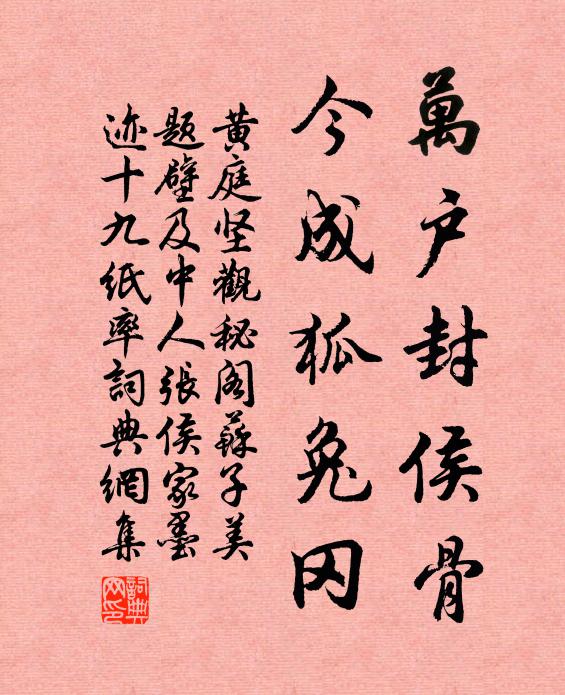 萬户封侯骨
今成狐兔冈
黄庭坚觀秘阁蘇子美
题壁及中人張侯家墨
迹十九纸率詞典網集
詞典网印